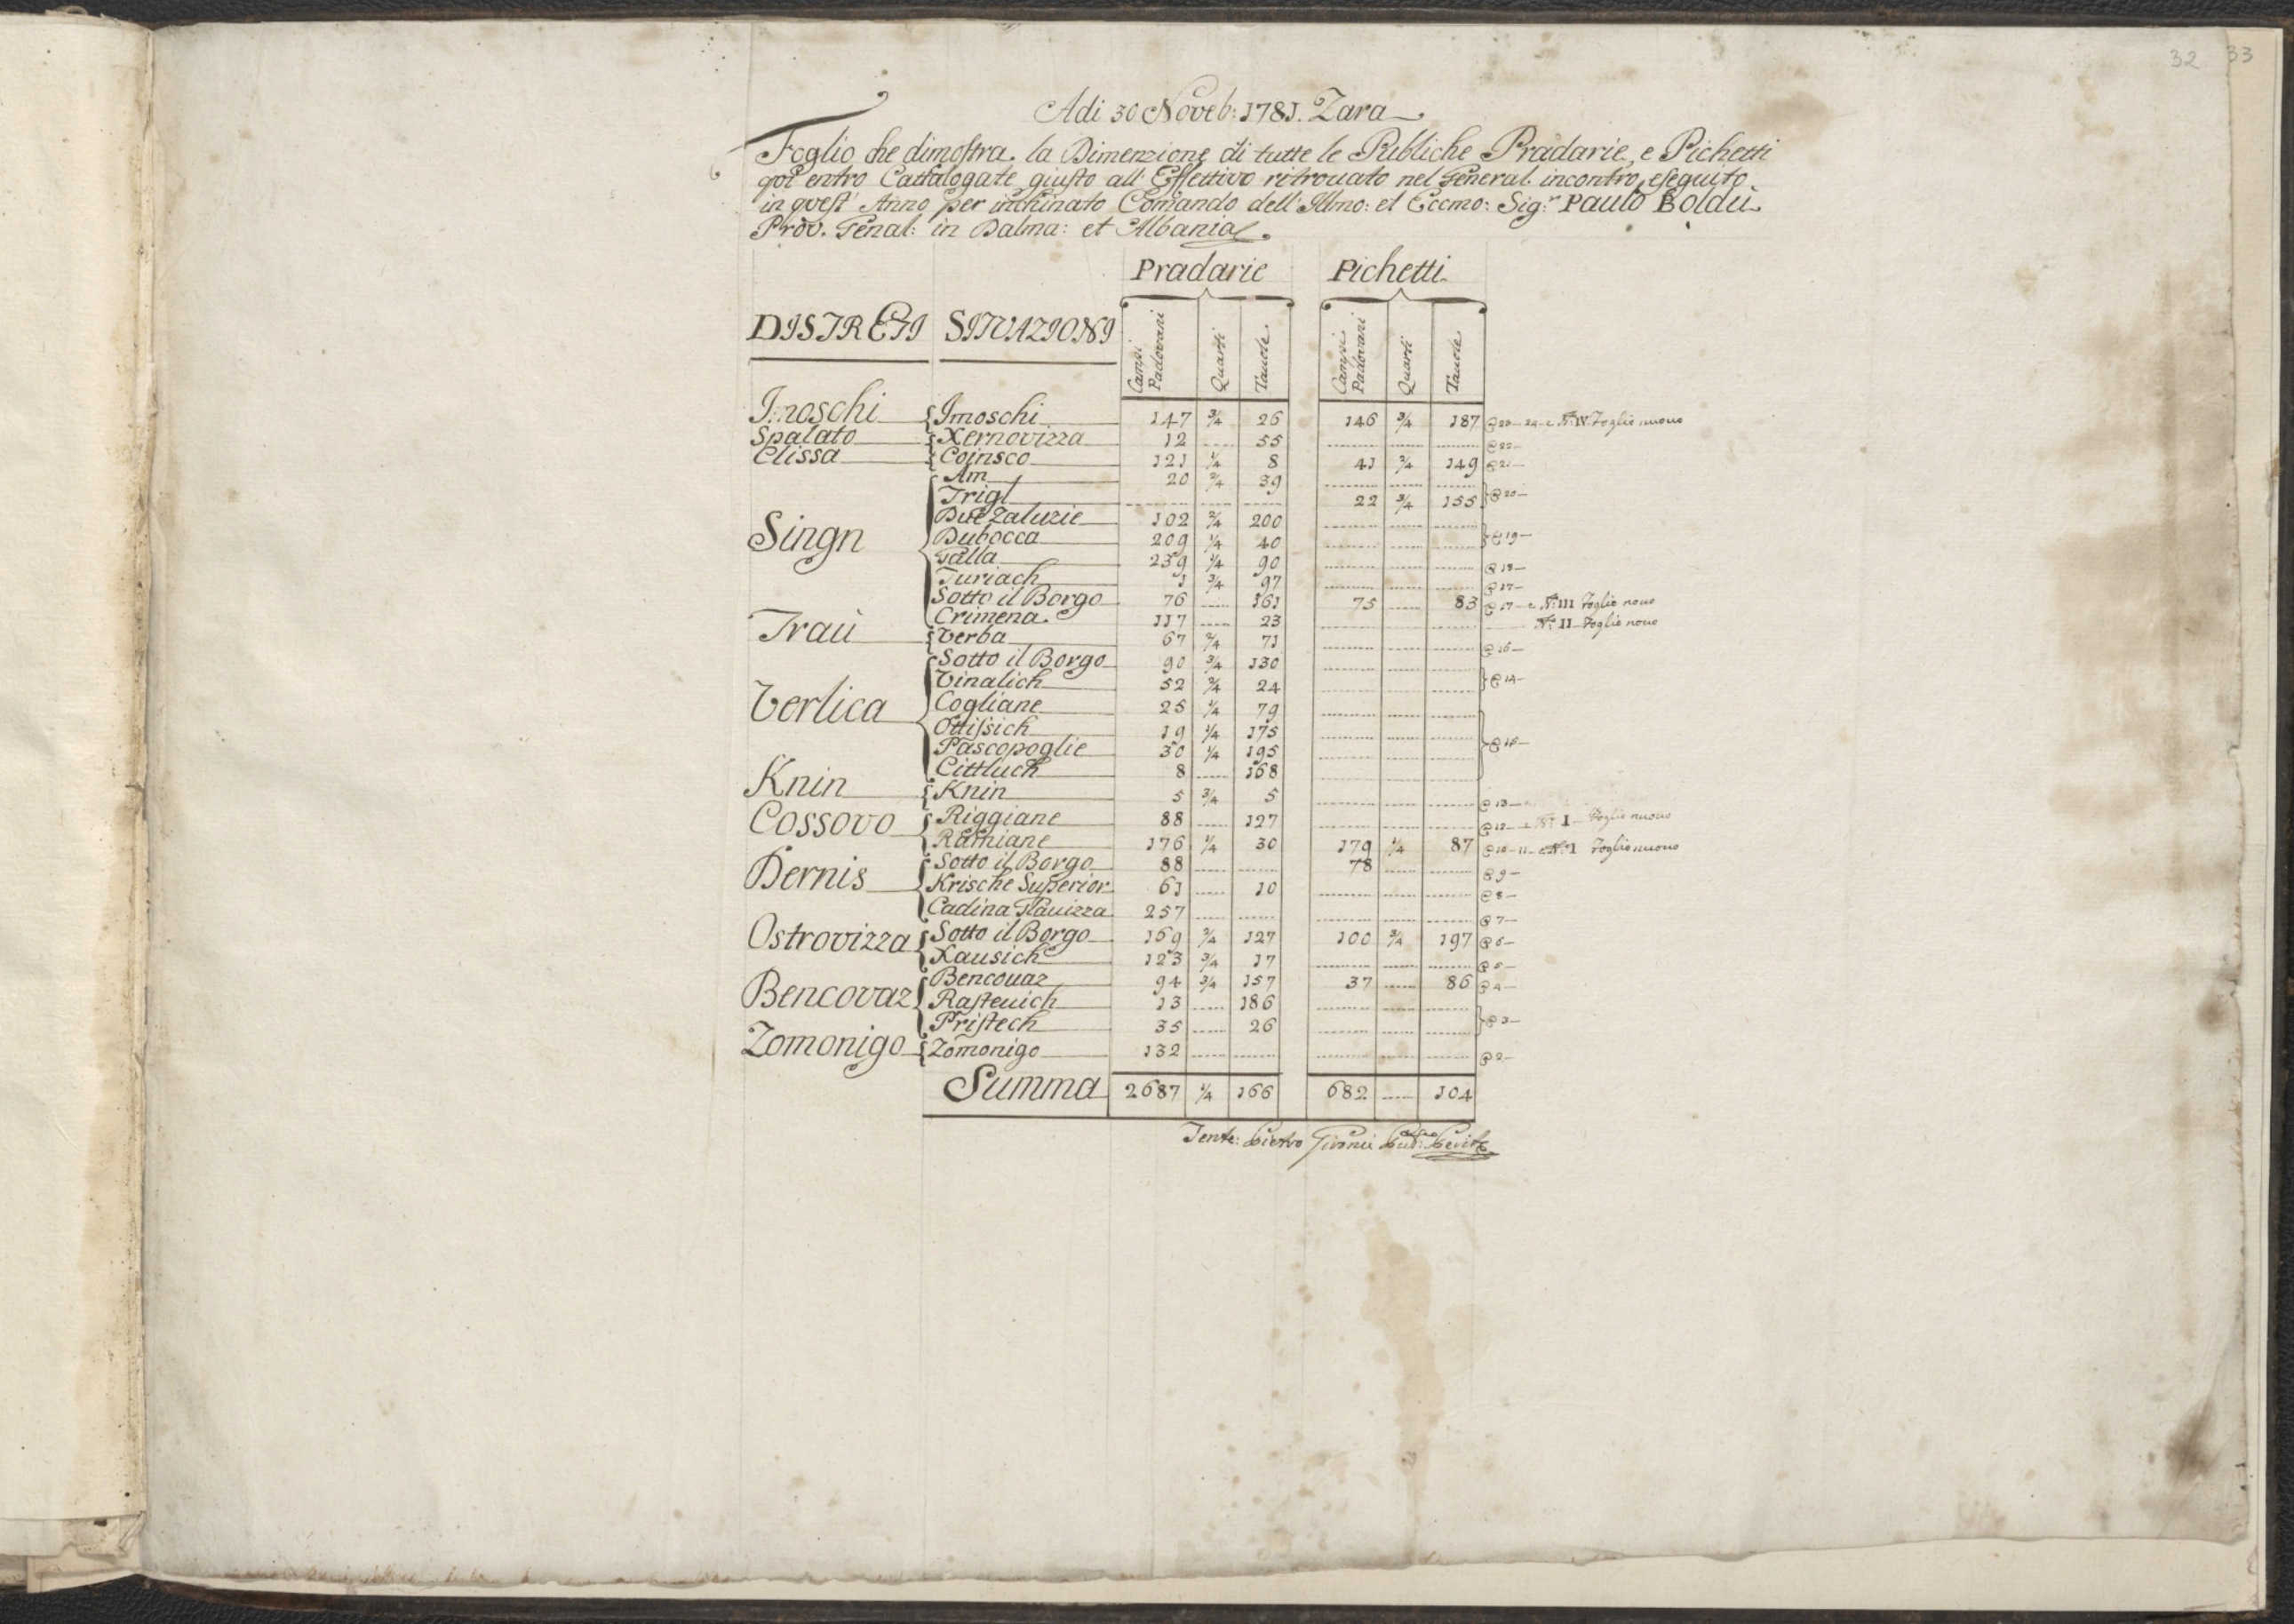 32 33
Adi 30 Noveb: 1781. Zara
Foglio che dimostra la Dimenzione di tutte le Publiche Pradarie, e Pichetti
qoi entro Cattalogate giusto all' Effettivo ritrouato nel General incontro eseguito
in quest' Anno per inchinato Comando dell' Illmo: et Eccmo: Sig.r Paulo Boldù
Prov. Genal: in Dalma: et Albania
Pradarie Pichetti
DISTRETI SITUAZIONI Campi Padovani Quarti Tauole Campi Padovani Quarti Tauole
Imoschi Imoschi 147 3/4 26 146 3/4 187 @ 23-24 e N: IV Foglio nuouo
Spalato Xernovizza 12 55 @ 22
Clissa Coinsco 121 1/4 8 41 2/4 149 @ 21
Singn Am 20 2/4 39
Trigl 22 3/4 155 @ 20
Due Zaluzie 102 2/4 200
Dubocca 209 1/4 40 @ 19
Talla 239 1/4 90 @ 18
Turiach 1 3/4 97 @ 17
Sotto il Borgo 76 161 75 83 @ 17 e N: III Foglio nouo
Crimena 117 23 N: II Foglio nouo
Traù Verba 67 2/4 71 @ 16
Verlica Sotto il Borgo 90 3/4 130
Vinalich 52 2/4 24 @ 14
Cogliane 25 1/4 79
Ottissich 19 1/4 175
Pascopoglie 30 1/4 195 @ 15
Cittluch 8 168
Knin Knin 5 3/4 5 @ 13
Cossovo Riggiane 88 127 @ 12 e N: I Foglio nuouo
Ramiane 176 1/4 30 179 1/4 87 @ 10-11 e N: I Foglio nuouo
Dernis Sotto il Borgo 88 78 @ 9
Krische Superior 61 10 @ 8
Cadina Glauizza 257 @ 7
Ostrovizza Sotto il Borgo 169 2/4 127 100 3/4 197 @ 6
Xausich 123 3/4 17 @ 5
Bencovaz Bencouaz 94 3/4 157 37 86 @ 4
Rasteuich 13 186
Pristech 35 26 @ 3
Zomonigo Zomonigo 132 @ 2
Summa 2687 1/4 166 682 104
Tente: Pietro Perito